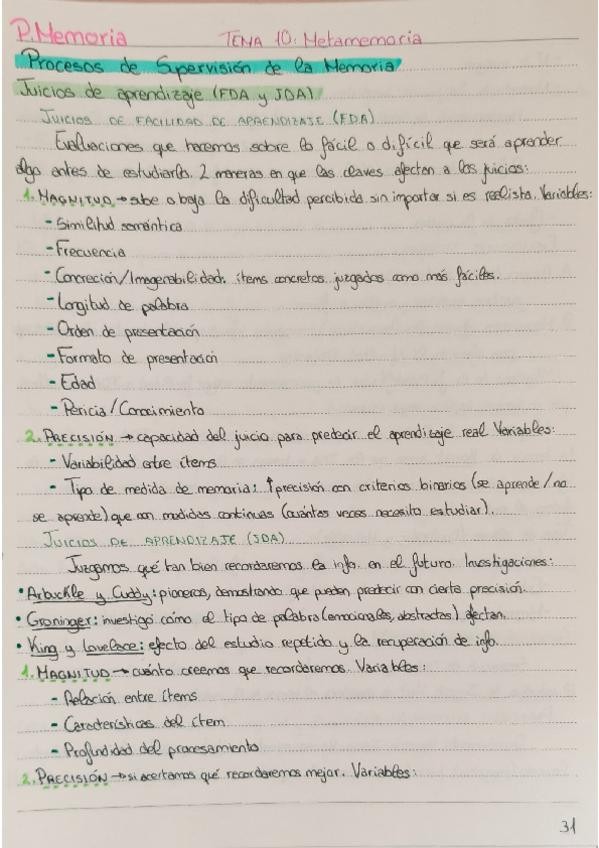 P. Memoria TEMA 10: Metamemoria
Procesos de Supervisión de la Memoria
Juicios de aprendizaje (FDA y JDA)
JUICIOS DE FACILIDAD DE APRENDIZAJE (FDA)
Evaluaciones que hacemos sobre lo fácil o difícil que será aprender
algo antes de estudiarlo. 2 maneras en que las claves afectan a los juicios:
1. MAGNITUD → sube o baja la dificultad percibida sin importar si es realista. Variables:
- Similitud semántica
- Frecuencia
- Concreción/Imagenabilidad: ítems concretos juzgados como más fáciles.
- Longitud de palabra
- Orden de presentación
- Formato de presentación
- Edad
- Pericia/Conocimiento
2. PRECISIÓN → capacidad del juicio para predecir el aprendizaje real Variables:
- Variabilidad entre ítems
- Tipo de medida de memoria: ↑ precisión con criterios binarios (se aprende/no
se aprende) que con medidas continuas (cuántas veces necesito estudiar).
JUICIOS DE APRENDIZAJE (JDA)
Juzgamos qué tan bien recordaremos la info. en el futuro. Investigaciones:
• Arbuckle y Cuddy: pioneros, demostrando que pueden predecir con cierta precisión.
• Groninger: investigó cómo el tipo de palabra (emocionales, abstractas) afectan.
• King y Lovelace: efecto del estudio repetido y la recuperación de info.
1. MAGNITUD → cuánto creemos que recordaremos. Variables:
- Relación entre ítems
- Características del ítem
- Profundidad del procesamiento
2. PRECISIÓN → si acertamos qué recordaremos mejor. Variables:
31